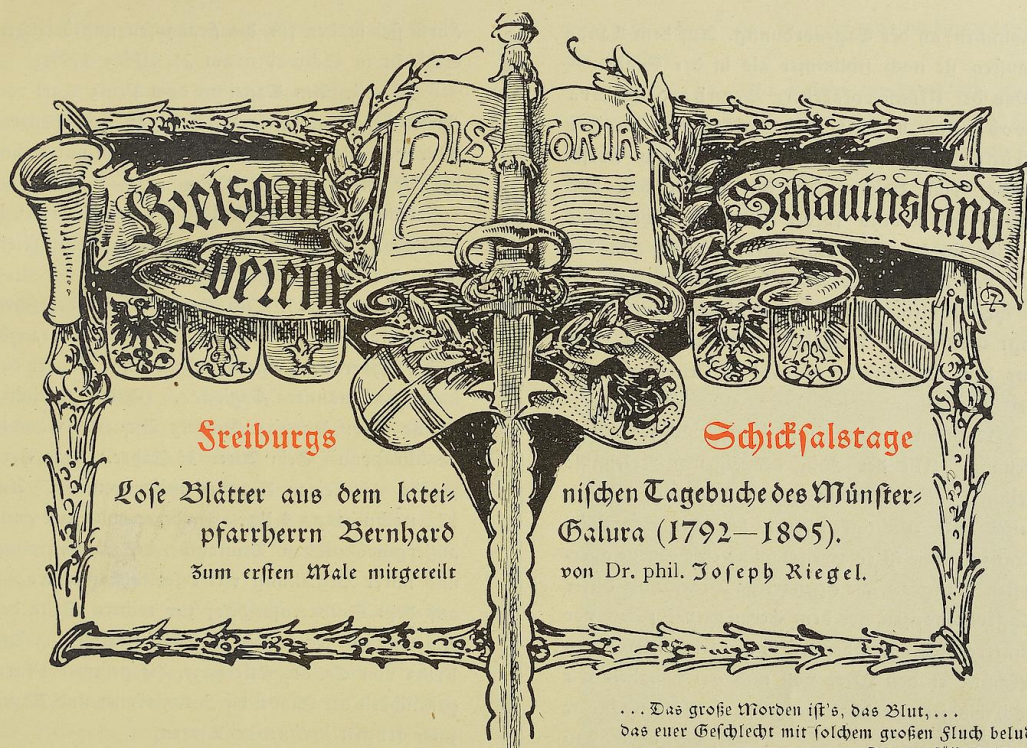 HISTORIA
Breisgau Schauinsland
verein
Freiburgs Schicksalstage
Lose Blätter aus dem latei- nischen Tagebuche des Münster-
pfarrherrn Bernhard Galura (1792—1805).
Zum ersten Male mitgeteilt von Dr. phil. Joseph Riegel.
... Das große Morden ist's, das Blut, ...
das euer Geschlecht mit solchem großen Fluch